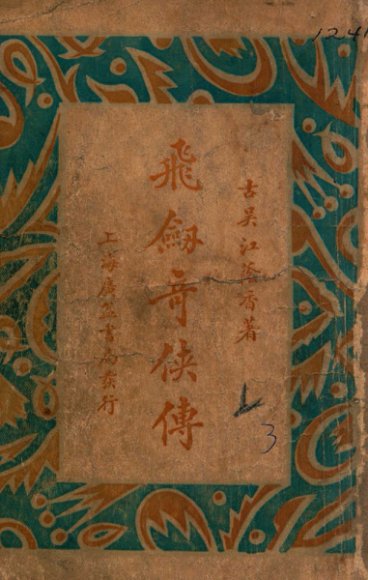 古吳江蔭香著
飛劔奇俠傳
上海廣益書局發行
3